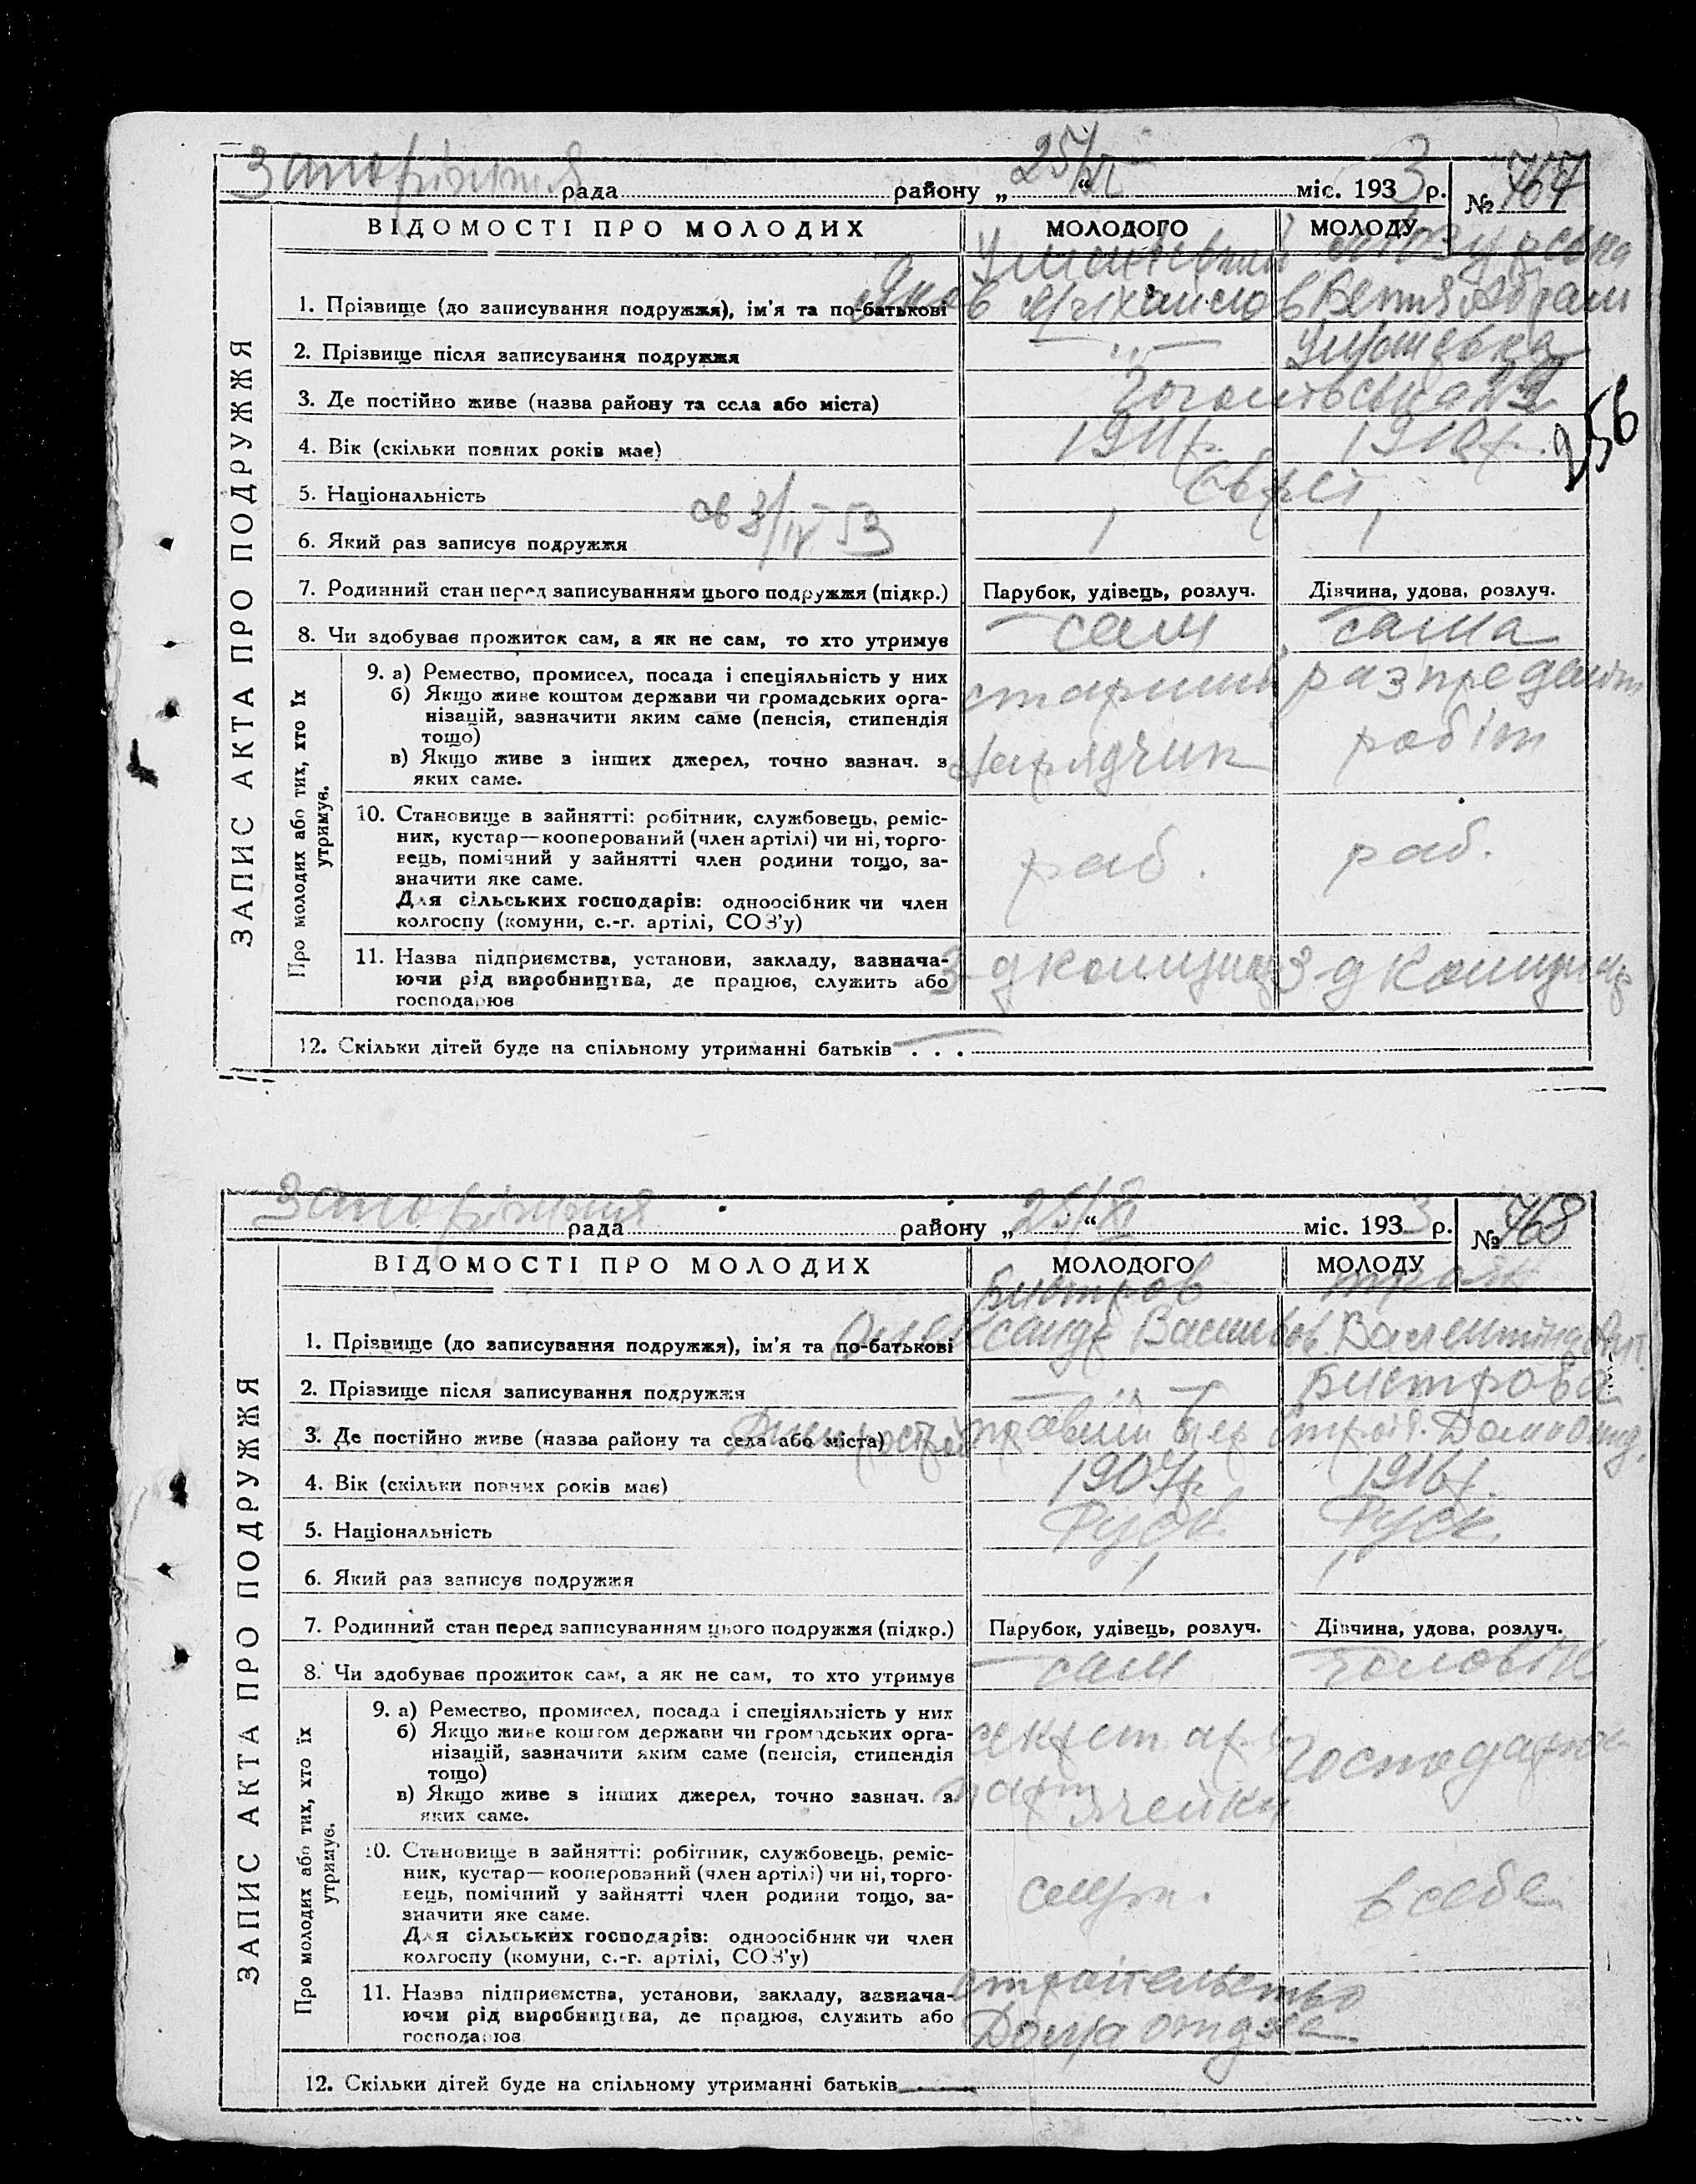 Запоріжжя рада району „25/XI“ міс. 1933 р. № 767
ВІДОМОСТІ ПРО МОЛОДИХ МОЛОДОГО МОЛОДУ
ЗАПИС АКТА ПРО ПОДРУЖЖЯ
1. Прізвище (до записування подружжя), ім’я та по-батькові Яков Михайлов
2. Прізвище після записування подружжя — „ —
3. Де постійно живе (назва району та села або міста)
4. Вік (скільки повних років має) 1911 р.
5. Національність Євреї
ов 3/IV 53
256
6. Який раз записує подружжя 1 1
7. Родинний стан перед записуванням цього подружжя (підкр.) Парубок, удівець, розлуч. Дівчина, удова, розлуч.
8. Чи здобуває прожиток сам, а як не сам, то хто утримує сам сама
Про молодих або тих, хто їх
утримує.
9. а) Ремество, промисел, посада і спеціяльність у них
б) Якщо живе коштом держави чи громадських орга-
нізацій, зазначити яким саме (пенсія, стипендія
тощо)
в) Якщо живе з інших джерел, точно зазнач. з
яких саме.
старший
нарядчик
робіт
10. Становище в зайнятті: робітник, службовець, реміс-
ник, кустар—кооперований (член артілі) чи ні, торго-
вець, помічний у зайнятті член родини тощо, за-
значити яке саме.
Для сільських господарів: одноосібник чи член
колгоспу (комуни, с.-г. артілі, СОЗ’у)
раб. раб.
11. Назва підприємства, установи, закладу, зазнача-
ючи рід виробництва, де працює, служить або
господарює
З-д Комунар З-д Комунар
12. Скільки дітей буде на спільному утриманні батьків . . . —
Запоріжжя рада району „25/XI“ міс. 1933 р. № 768
ВІДОМОСТІ ПРО МОЛОДИХ МОЛОДОГО МОЛОДУ
ЗАПИС АКТА ПРО ПОДРУЖЖЯ
Бистров
1. Прізвище (до записування подружжя), ім’я та по-батькові Олександр Васильов. Валентина
2. Прізвище після записування подружжя — „ — Бистрова
3. Де постійно живе (назва району та села або міста) правий бер
4. Вік (скільки повних років має) 1907 р. 1916 р.
5. Національність Руск. Руск.
6. Який раз записує подружжя 1 1
7. Родинний стан перед записуванням цього подружжя (підкр.) Парубок, удівець, розлуч. Дівчина, удова, розлуч.
8. Чи здобуває прожиток сам, а як не сам, то хто утримує сам чоловік
Про молодих або тих, хто їх
утримує.
9. а) Ремество, промисел, посада і спеціяльність у них
б) Якщо живе коштом держави чи громадських орга-
нізацій, зазначити яким саме (пенсія, стипендія
тощо)
в) Якщо живе з інших джерел, точно зазнач. з
яких саме.
секретар
парт ячейки
10. Становище в зайнятті: робітник, службовець, реміс-
ник, кустар—кооперований (член артілі) чи ні, торго-
вець, помічний у зайнятті член родини тощо, за-
значити яке саме.
Для сільських господарів: одноосібник чи член
колгоспу (комуни, с.-г. артілі, СОЗ’у)
служ. в себе
11. Назва підприємства, установи, закладу, зазнача-
ючи рід виробництва, де працює, служить або
господарює
строітельство
12. Скільки дітей буде на спільному утриманні батьків —